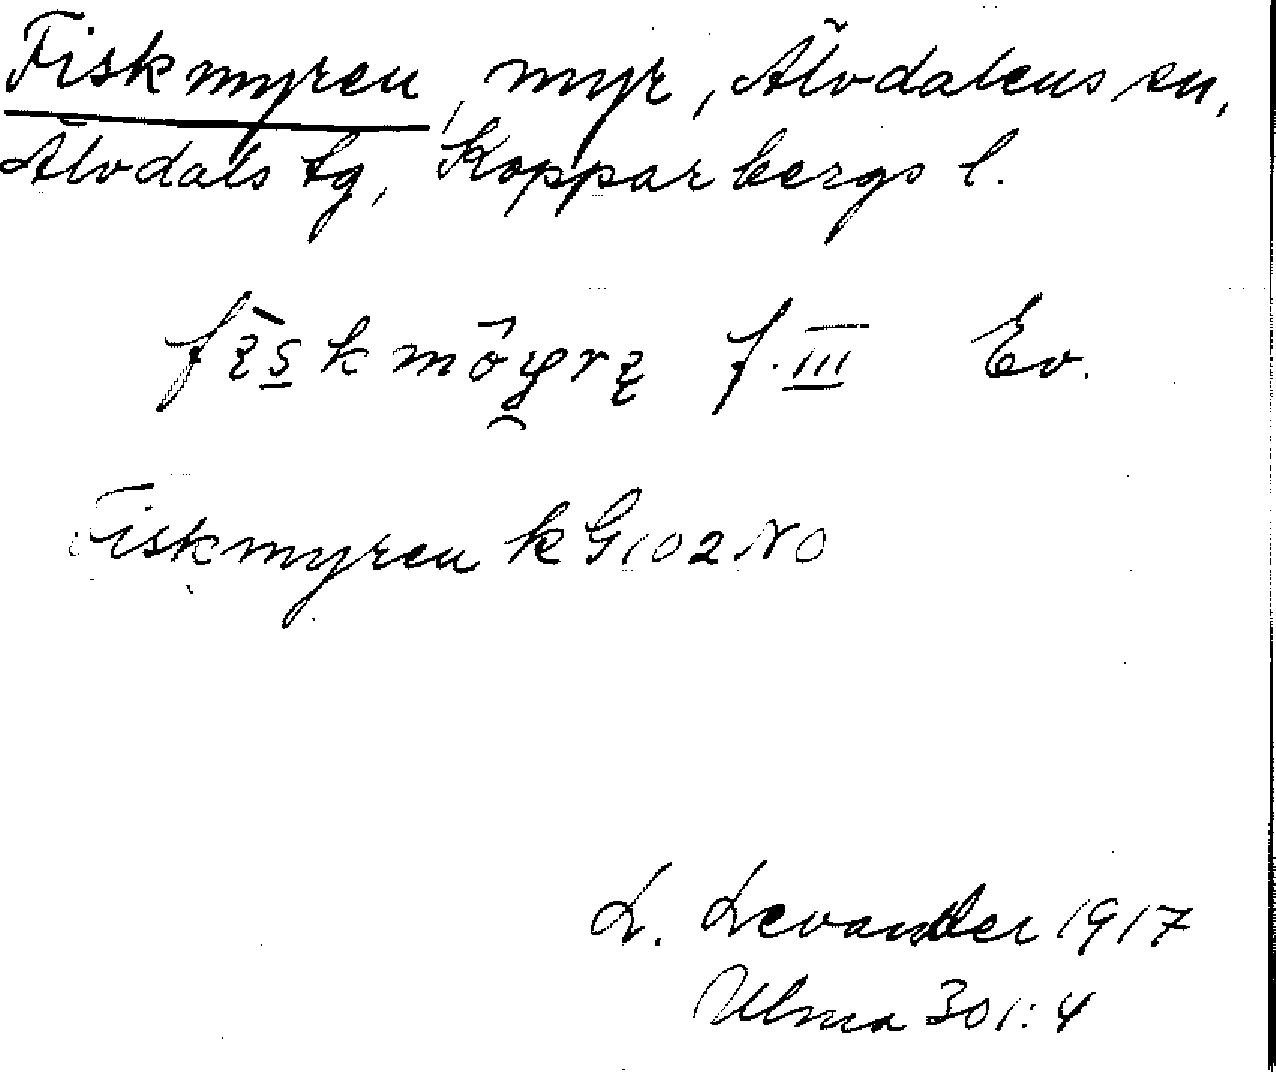 Fiskmyren, myr, Älvdalens sn,
Älvdals tg, Kopparbergs l.
f. III Ev.
Fiskmyren k G 102 NO
L. Levander 1917
Ulma 301:4